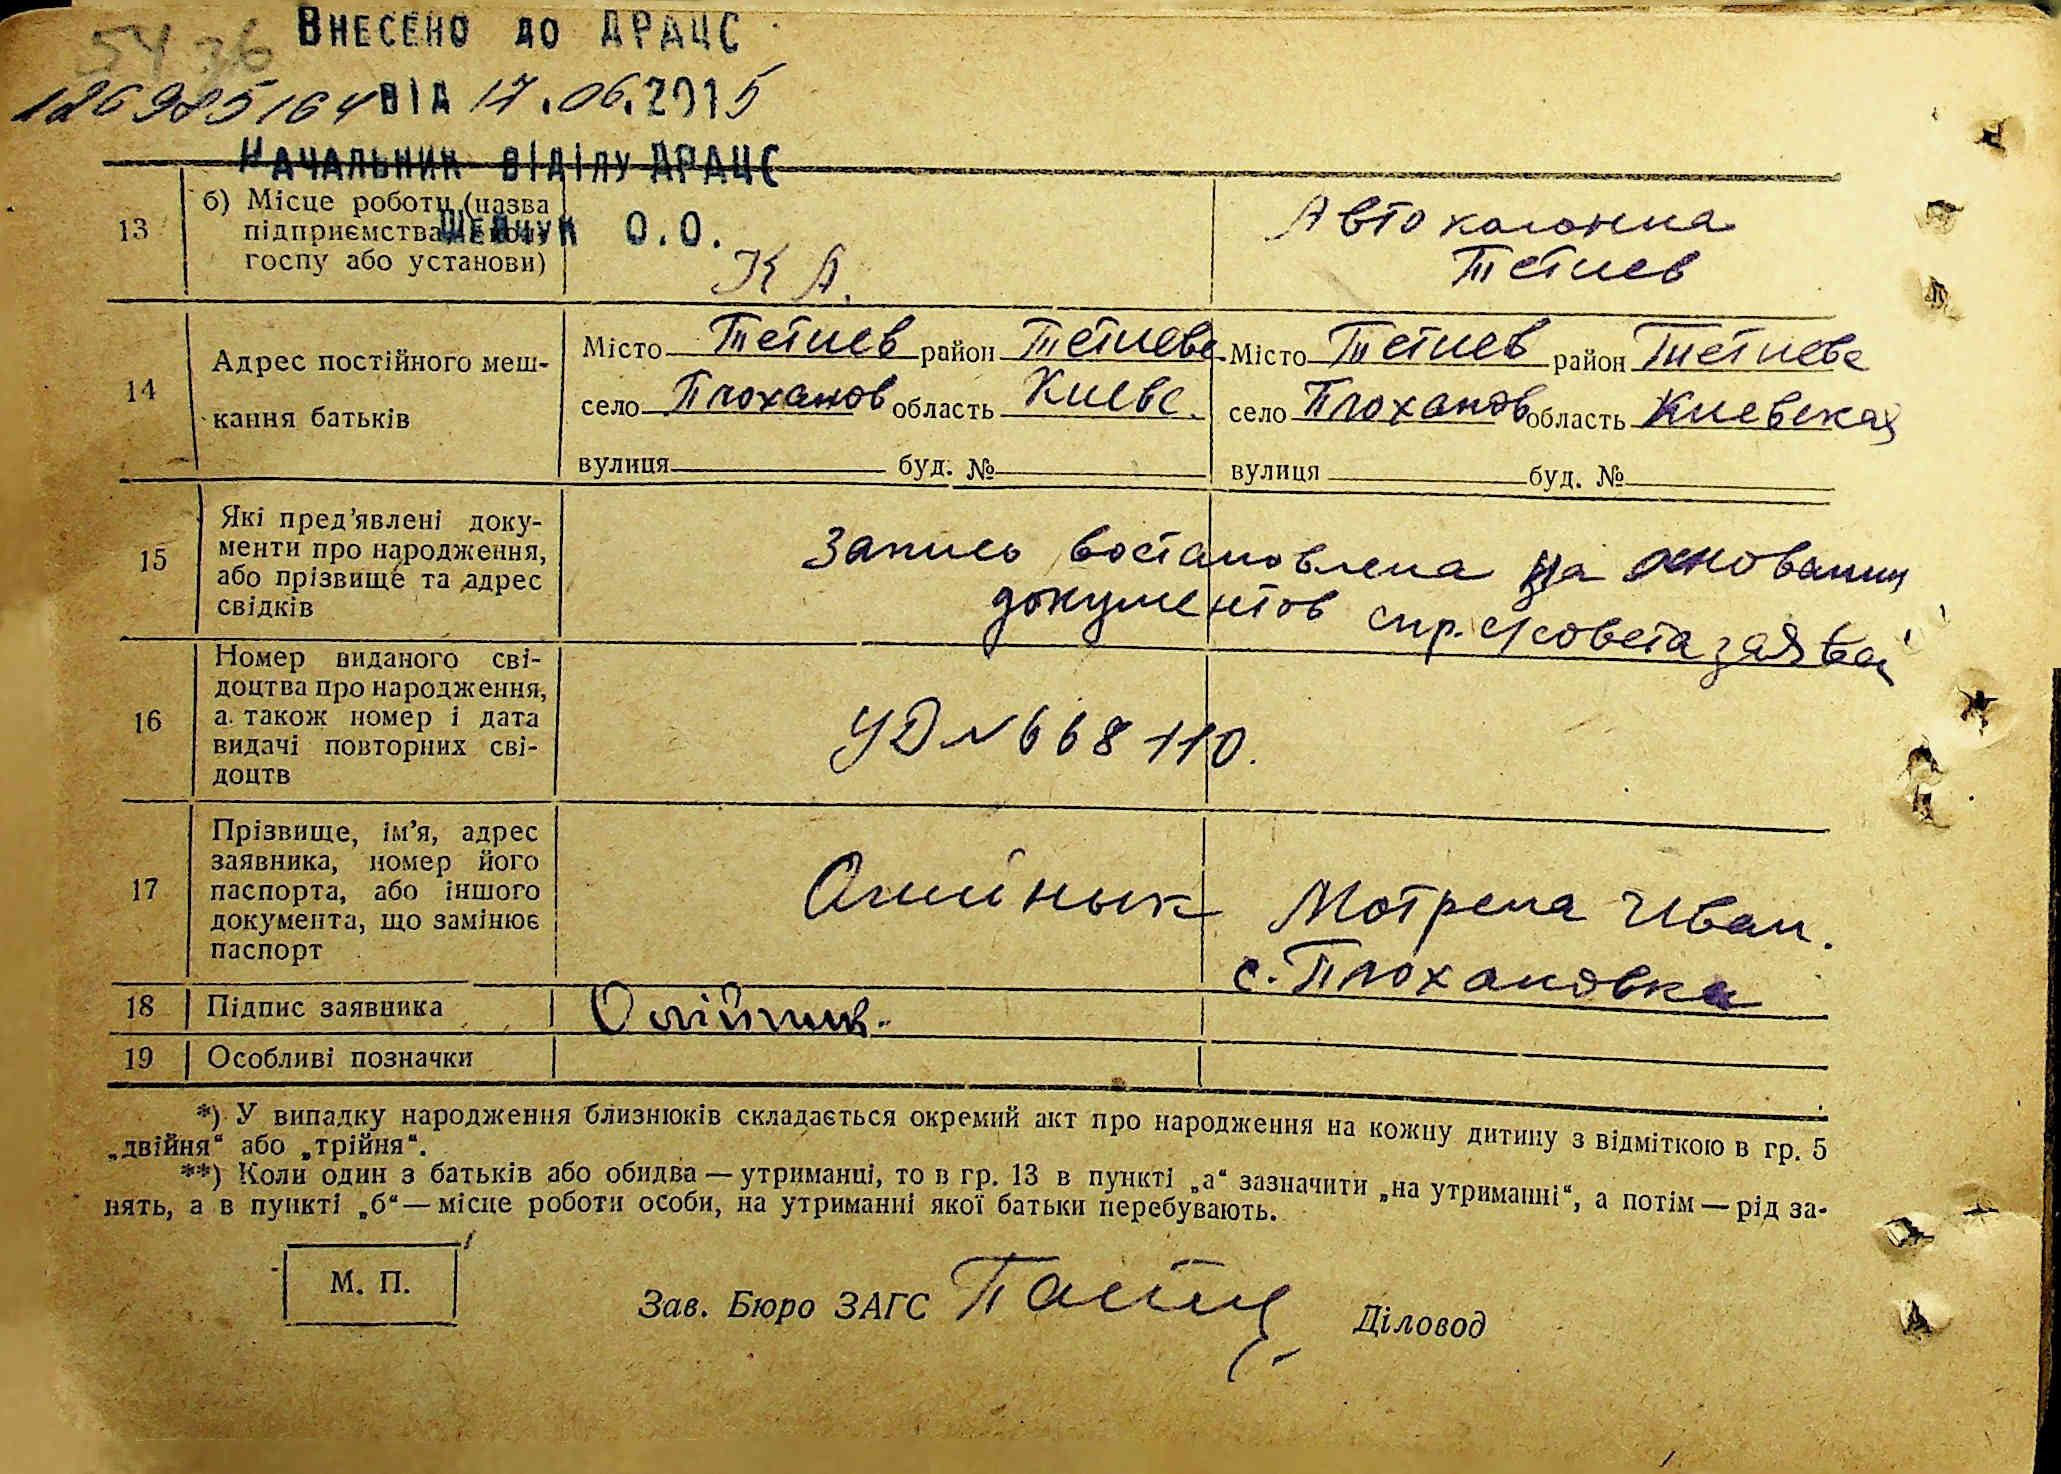 54 36
ВНЕСЕНО ДО ДРАЦС
126985164 ВІД 17.06.2015
НАЧАЛЬНИК ВІДІЛУ ДРАЦС
О.О.
13
б) Місце роботи (назва
підприємства,
госпу або установи)
К А.
Автоколонна
Тетиев
14
Адрес постійного меш-
кання батьків
Місто Тетиев район Тетиевс.
село Плоханов область Киевс.
вулиця буд. №
Місто Тетиев район Тетиевс
село Плоханов область Киевская
вулиця буд. №
15
Які пред’явлені доку-
менти про народження,
або прізвище та адрес
свідків
Запись востановлена на основании
документов спр. с/совета заявл
16
Номер виданого сві-
доцтва про народження,
а також номер і дата
видачі повторних сві-
доцтв
УД №668110.
17
Прізвище, ім’я, адрес
заявника, номер його
паспорта, або іншого
документа, що замінює
паспорт
Олийнык Мотрена Иван.
с. Плохановка
18
Підпис заявника
Олійник.
19
Особливі позначки
*) У випадку народження близнюків складається окремий акт про народження на кожну дитину з відміткою в гр. 5
„двійня“ або „трійня“.
**) Коли один з батьків або обидва — утриманці, то в гр. 13 в пункті „а“ зазначити „на утриманні“, а потім — рід за-
нять, а в пункті „б“ — місце роботи особи, на утриманні якої батьки перебувають.
М. П.
Зав. Бюро ЗАГС
Діловод